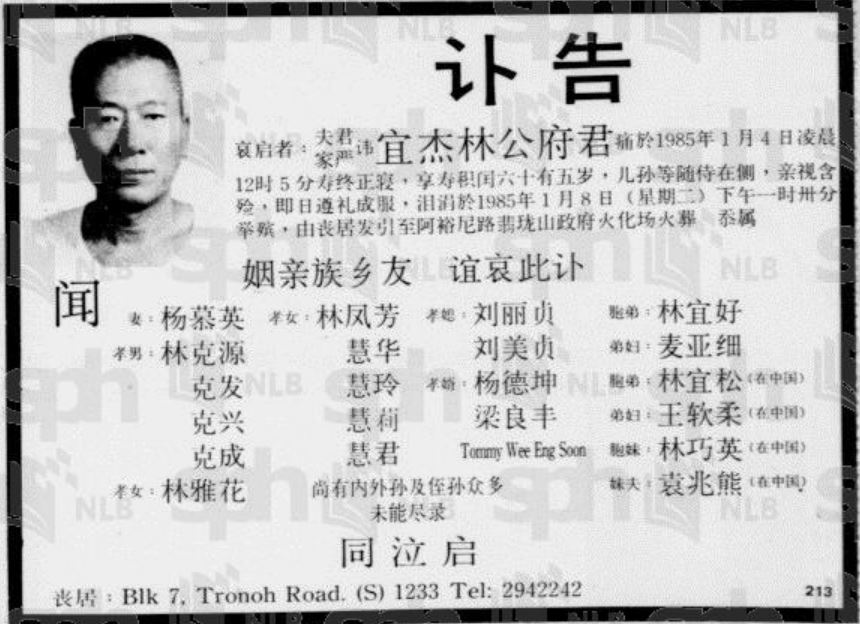 讣告
哀启者：夫君家严讳宜杰林公府君痛於1985年1月4日凌晨
12时5分寿终正寝，享寿积闰六十有五岁，儿孙等随侍在侧，亲视含
殓，即日遵礼成服，泪涓於1985年1月8日（星期二）下午一时卅分
举殡，由丧居发引至阿裕尼路翡珑山政府火化场火葬 忝属
姻亲族乡友 谊哀此讣
闻
妻：杨慕英 孝女：林凤芳 孝媳：刘丽贞 胞弟：林宜好
孝男：林克源 慧华 刘美贞 弟妇：麦亚细
克发 慧玲 孝婿：杨德坤 胞弟：林宜松（在中国）
克兴 慧莉 梁良丰 弟妇：王软柔（在中国）
克成 慧君 Tommy Wee Eng Soon 胞妹：林巧英（在中国）
孝女：林雅花 尚有内外孙及侄孙众多 妹夫：袁兆熊（在中国）
未能尽录
同泣启
丧居：Blk 7, Tronoh Road. (S) 1233 Tel: 2942242
213